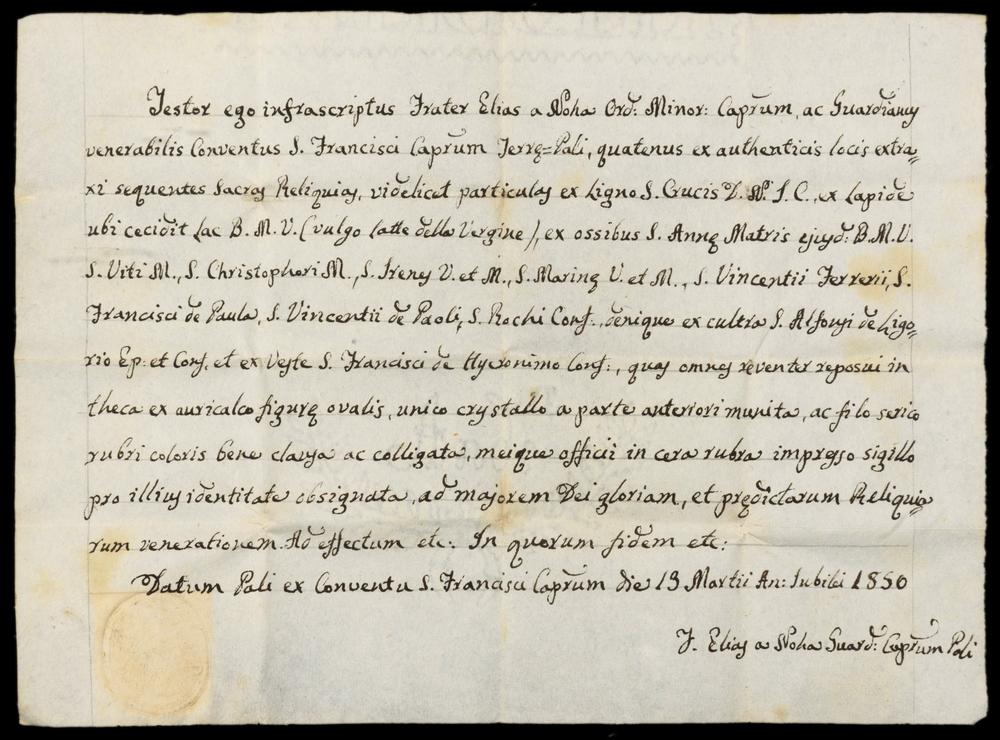 Testor ego infrascriptus Frater Elias a Noha Ord: Minor: Caprum, ac Guardianus
venerabilis Conventus S. Francisci Caprum Terrę=Pali, quatenus ex authenticis locis extra=
xi sequentes Sacras Reliquias, videlicet particulas ex Ligno S. Crucis D. N. J. C., ex lapide
ubi cecidit lac B. M. V. (vulgo latte della Vergine), ex ossibus S. Annę Matris ejusd: B. M. V.
S. Viti M., S. Christophori M., S. Irenes V. et M., S. Marinę V. et M., S. Vincentii Ferrerii, S.
Francisci de Paula, S. Vincentii de Paoli, S. Rochi Conf., denique ex cultra S. Alfonsi de Ligo=
rio Ep: et Conf, et ex Veste S. Francisci de Hyeronimo Conf:, quas omnes reventer reposui in
theca ex auricalco figurę ovalis, unico crystallo a parte anteriori munita, ac filo serico
rubri coloris bene clausa ac colligata, meique officii in cera rubra impresso sigillo
pro illius identitate obsignata, ad majorem Dei gloriam, et prędictarum Reliquia=
rum venerationem. Ad effectum etc: In quorum fidem etc:
Datum Pali ex Conventu S. Francisci Caprum die 13 Martii An: Jubilei 1850
F. Elias a Noha Guard: Caprum Pali